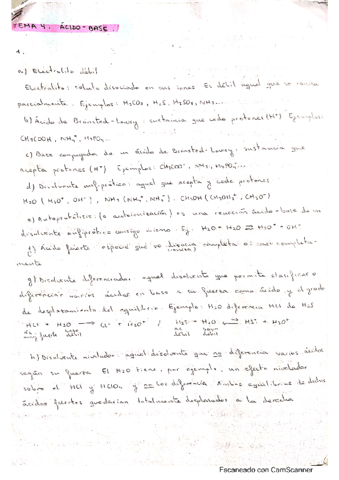 TEMA 4. ÁCIDO-BASE
1.
a) Electrolito débil
Electrolito: soluto disociado en sus iones. Es débil aquel que se
parcialmente. Ejemplos: H₂CO₃, H₂S, H₂SO₃, NH₃...
b) Ácido de Brønsted-Lowry: sustancia que cede protones (H⁺) Ejemplos:
CH₃COOH, NH₄⁺, H₃PO₄...
c) Base conjugada de un ácido de Brønsted-Lowry: sustancia que
acepta protones (H⁺) Ejemplos: CH₃COO⁻, NH₃, H₂PO₄⁻...
d) Disolvente anfiprótico: aquel que acepta y cede protones
H₂O (H₃O⁺, OH⁻), NH₃ (NH₄⁺, NH₂⁻), CH₃OH (CH₃OH₂⁺, CH₃O⁻)
e) Autoprotólisis: (o autoionización) es una reacción ácido-base de un
disolvente anfiprótico consigo mismo. Ej: H₂O + H₂O ⇌ H₃O⁺ + OH⁻
f) Ácido fuerte: especie que se disocia completa o casi completa-
mente
g) Disolvente diferenciador: aquel disolvente que permite clasificar o
diferenciar varios ácidos en base a su fuerza como ácido y el grado
de desplazamiento del equilibrio. Ejemplo: H₂O diferencia HCl de H₂S
HCl + H₂O → Cl⁻ + H₃O⁺ / H₂S + H₂O ⇌ HS⁻ + H₃O⁺
ác. muy fuerte base débil ác. débil base débil
h) Disolvente nivelador: aquel disolvente que no diferencia varios ácidos
según su fuerza. El H₂O tiene, por ejemplo, un efecto nivelador
sobre el HCl y HClO₄ y no los diferencia. Ambos equilibrios de dichos
ácidos fuertes quedarían totalmente desplazados a la derecha
Escaneado con CamScanner